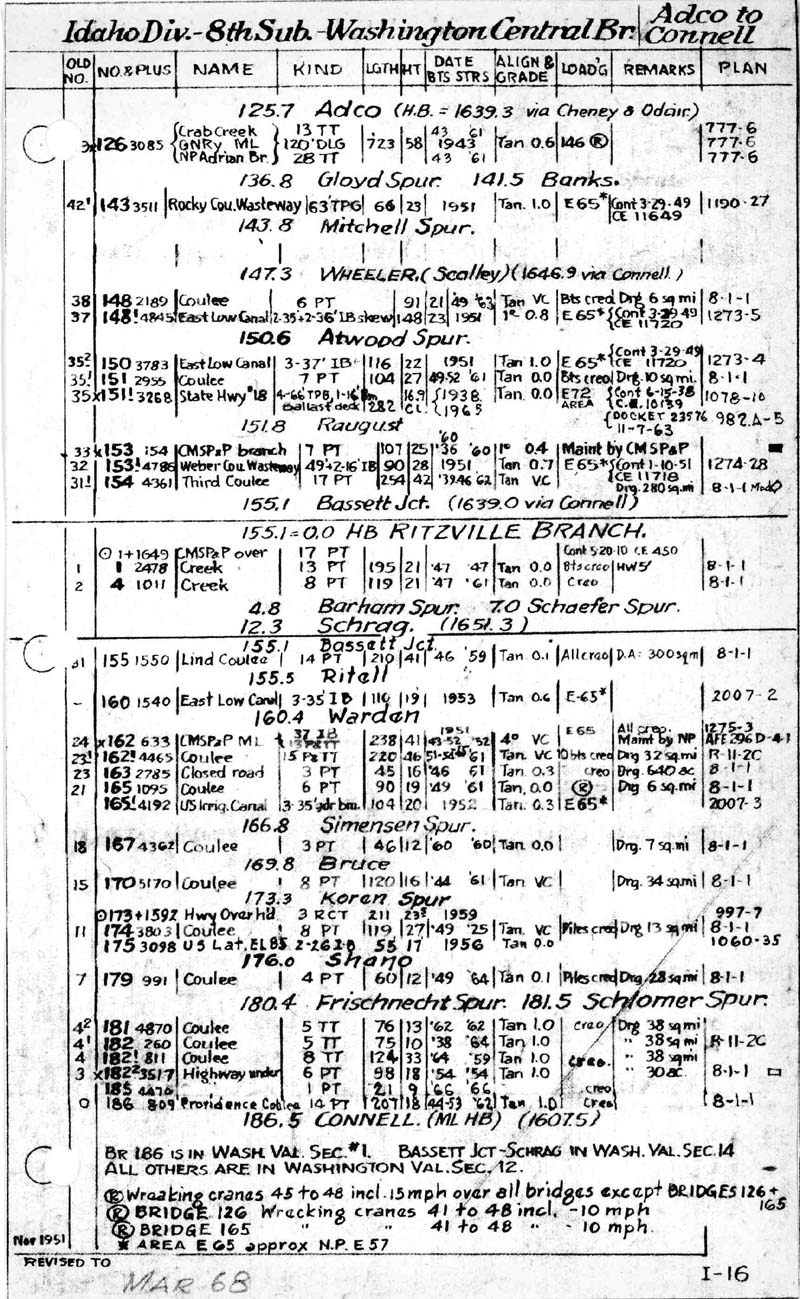 Idaho Div.-8th Sub.-Washington Central Br. Adco to Connell
OLD NO. NO. & PLUS NAME KIND LGTH HT DATE BTS STRS ALIGN & GRADE LOAD'G REMARKS PLAN
125.7 Adco (H.B. = 1639.3 via Cheney & Odair.)
Crab Creek 13 TT 43 '61 777-6
126 3085 GNRy ML 120' DLG 723 58 1943 Tan 0.6 146 Ⓡ 777-6
NP Adrian Br. 28 TT 43 '61 777-6
136.8 Gloyd Spur. 141.5 Banks.
42' 143 3511 Rocky Cou. Wasteway 63' TPG 66 23 1951 Tan. 1.0 E 65* Cont 3-29-49 CE 11649 1190-27
143.8 Mitchell Spur.
147.3 WHEELER, (Scalley) (1646.9 via Connell.)
38 148 2189 Coulee 6 PT 91 21 '49 '63 Tan VC Bts creo Drg 6 sq mi 8-1-1
37 148! 4845 East Low Canal 2-35+2-36' IB skew 148 23 1951 1° 0.8 E 65* Cont 3-29-49 CE 11720 1273-5
150.6 Atwood Spur.
35² 150 3783 East Low Canal 3-37' IB 116 22 1951 Tan 1.0 E 65* Cont 3-29-49 CE 11720 1273-4
35! 151 2955 Coulee 7 PT 104 27 49-52 '61 Tan 0.0 Bts creo Drg. 10 sq. mi. 8-1-1
35x 151! 3268 State Hwy #18 4-66 TPB, 1-16 Bm ballast deck 282 16.9 CL. 1938 1965 Tan 0.0 E72 AREA Cont 6-15-38 C.E. 10139 1078-10
DOCKET 23576 11-7-63 982A-5
151.8 Raugust
33x 153 154 CMSP&P branch 7 PT 107 25 '36 '60 '60 1° 0.4 Maint by CMSP&P
32 153! 4786 Weber Cou. Wasteway 49'+2-16' IB 90 28 1951 Tan 0.7 E 65* Cont 1-10-51 CE 11718 1274-28
31! 154 4361 Third Coulee 17 PT 254 42 '39 46 '62 Tan VC Drg. 280 sq. mi 8-1-1 Mod
155.1 Bassett Jct. (1639.0 via Connell)
155.1 = 0.0 HB RITZVILLE BRANCH.
⊙ 1+1649 CMSP&P over 17 PT Cont 5-20-10 CE 450
1 1 2478 Creek 13 PT 195 21 '47 '47 Tan 0.0 Bts creo HW5' 8-1-1
2 4 1011 Creek 8 PT 119 21 '47 '61 Tan 0.0 Creo 8-1-1
4.8 Barham Spur. 7.0 Schaefer Spur.
12.3 Schrag. (1651.3)
155.1 Bassett Jct.
31 155 1550 Lind Coulee 14 PT 210 41 '46 '59 Tan 0.1 All creo D.A: 300 sq m 8-1-1
155.5 Ritell
- 160 1540 East Low Canal 3-35' IB 110 19 1953 Tan 0.6 E-65* 2007-2
160.4 Warden
24 x162 633 CMSP&P ML 37 IB 238 41 1951 43-52 '52 4° VC E 65 All creo. Maint by NP 1275-3 AFE 296 D-41
23! 162! 4465 Coulee 15 P&TT 220 46 '61 Tan. VC 10 bts creo Drg 32 sq. mi R-11-2C
23 163 2785 Closed road 3 PT 45 16 '46 61 Tan 0.3 creo Drg. 640 ac 8-1-1
21 165 1095 Coulee 6 PT 90 19 '49 '61 Tan, 0.0 Ⓡ Drg 6 sq. mi 8-1-1
165! 4192 US Irrig. Canal 3-35' gdr bm. 104 20 1952 Tan. 0.3 E 65* 2007-3
166.8 Simensen Spur.
18 167 4362 Coulee 3 PT 46 12 '60 '60 Tan 0.0 Drg. 7 sq. mi 8-1-1
169.8 Bruce
15 170 5170 Coulee 8 PT 120 16 '44 '61 Tan VC Drg. 34 sq. mi 8-1-1
173.3 Koren Spur
⊙173+1592 Hwy Over hd 3 RCT 211 23² 1959 997-7
11 174 3803 Coulee 8 PT 119 27 '49 '25 Tan. VC Piles creo Drg 13 sq mi 8-1-1
175 3098 US Lat. EL85 2-262B 55 17 1956 Tan 0.0 1060-35
176.0 Shano
7 179 991 Coulee 4 PT 60 12 '49 '64 Tan 0.1 Piles creo Drg 28 sq. mi 8-1-1
180.4 Frischnecht Spur. 181.5 Schlomer Spur.
4² 181 4870 Coulee 5 TT 76 13 '62 '62 Tan 1.0 creo Drg 38 sq mi
4' 182 260 Coulee 5 TT 75 10 '38 '64 Tan 1.0 " 38 sq. mi R-11-2C
4 182! 811 Coulee 8 TT 124 33 '64 '59 Tan 1.0 creo. " 38 sq. mi
3 x182² 3517 Highway under 6 PT 98 18 '54 '54 Tan 1.0 " 30 ac. 8-1-1
185 4470 1 PT 21 9 '66 '66 creo
0 186 809 Providence Coulee 14 PT 207 18 44-53 '62 Tan 1.0 Creo 8-1-1
186.5 CONNELL. (ML HB) (1607.5)
BR 186 IS IN WASH. VAL. SEC. #1. BASSETT JCT-SCHRAG IN WASH. VAL. SEC. 14
ALL OTHERS ARE IN WASHINGTON VAL. SEC. 12.
Ⓡ Wreaking cranes 45 to 48 incl. 15 mph over all bridges except BRIDGES 126 + 165
Ⓡ BRIDGE 126 Wrecking cranes 41 to 48 incl, -10 mph
Ⓡ BRIDGE 165 " " 41 to 48 " - 10 mph.
* AREA E65 approx N.P. E57
Nov 1951
REVISED TO
MAR 68
I-16